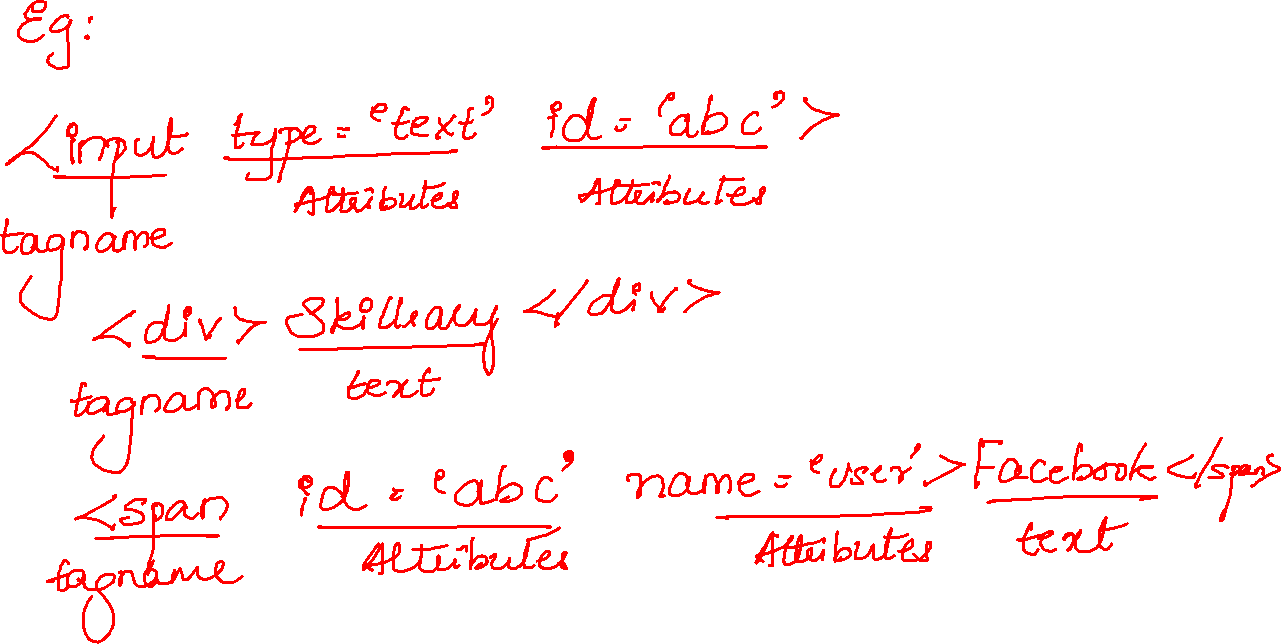 Eg:
<input type = 'text' id = 'abc'>
Attributes Attributes
tagname
<div> Skillrary </div>
tagname text
<span id = 'abc' name = 'user'>Facebook</span>
tagname Attributes Attributes text